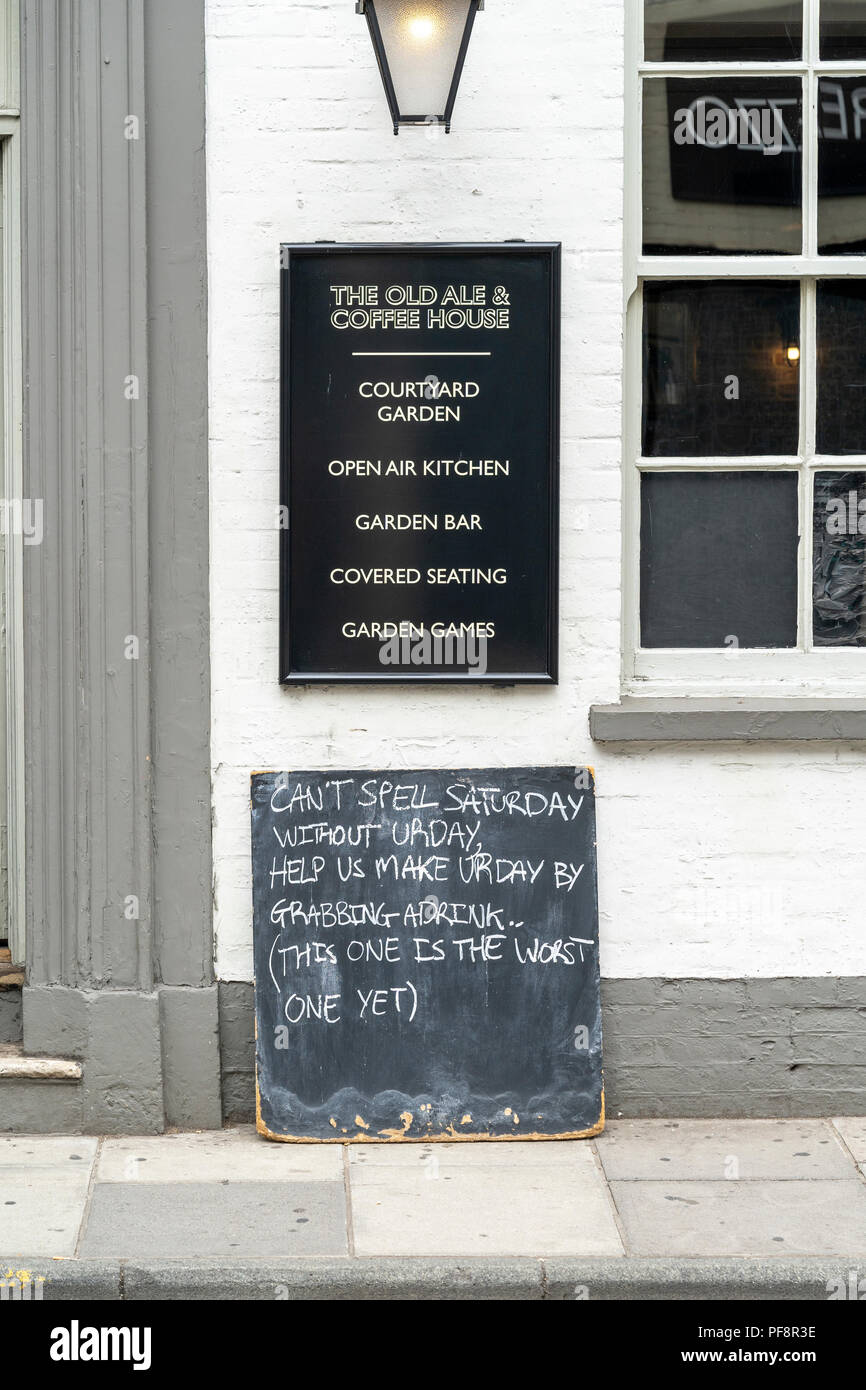 REZZO
THE OLD ALE &
COFFEE HOUSE
COURTYARD
GARDEN
OPEN AIR KITCHEN
GARDEN BAR
COVERED SEATING
GARDEN GAMES
CAN'T SPELL SATURDAY
WITHOUT URDAY,
HELP US MAKE URDAY BY
GRABBING A DRINK..
(THIS ONE IS THE WORST
ONE YET)
a
alamy
a
alamy
Image ID: PF8R3E
www.alamy.com